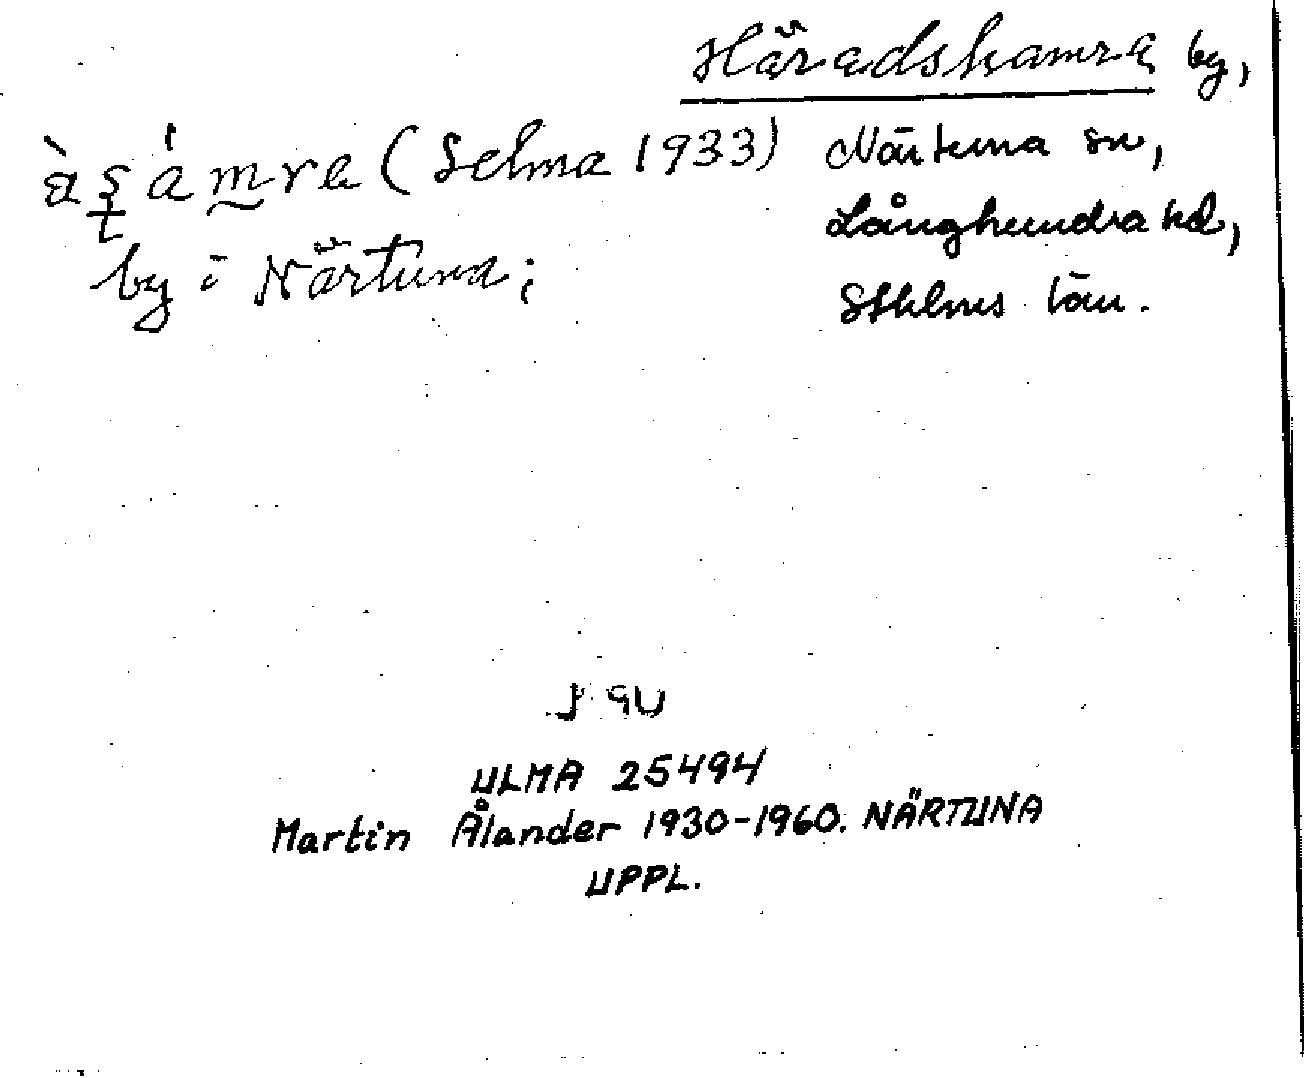 Häradshamra by,
àṣámra (Selma 1933) Närtuna sn,
Långhundra hd,
by i Närtuna;
Sthlms län.
ULMA 25494
Martin Ålander 1930-1960. NÄRTUNA
UPPL.